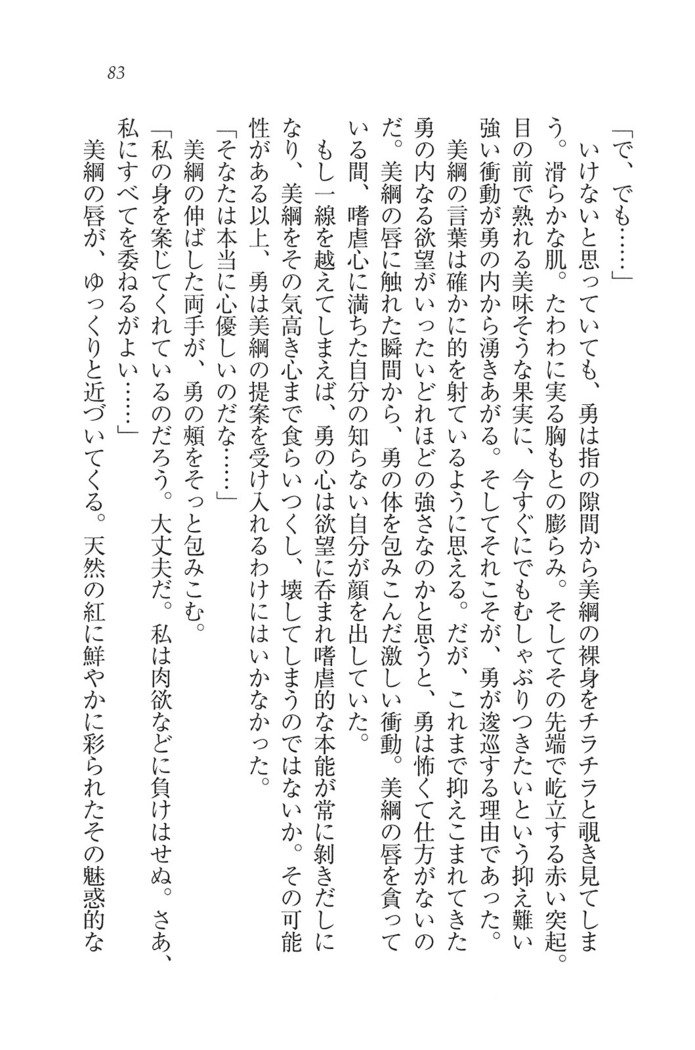 83
「で、でも……」
いけないと思っていても、勇は指の隙間から美綱の裸身をチラチラと覗き見てしま
う。滑らかな肌。たわわに実る胸もとの膨らみ。そしてその先端で屹立する赤い突起。
目の前で熟れる美味そうな果実に、今すぐにでもむしゃぶりつきたいという抑え難い
強い衝動が勇の内から湧きあがる。そしてそれこそが、勇が逡巡する理由であった。
美綱の言葉は確かに的を射ているように思える。だが、これまで抑えこまれてきた
勇の内なる欲望がいったいどれほどの強さなのかと思うと、勇は怖くて仕方がないの
だ。美綱の唇に触れた瞬間から、勇の体を包みこんだ激しい衝動。美綱の唇を貪って
いる間、嗜虐心に満ちた自分の知らない自分が顔を出していた。
もし一線を越えてしまえば、勇の心は欲望に呑まれ嗜虐的な本能が常に剝きだしに
なり、美綱をその気高き心まで食らいつくし、壊してしまうのではないか。その可能
性がある以上、勇は美綱の提案を受け入れるわけにはいかなかった。
「そなたは本当に心優しいのだな……」
美綱の伸ばした両手が、勇の頰をそっと包みこむ。
「私の身を案じてくれているのだろう。大丈夫だ。私は肉欲などに負けはせぬ。さあ、
私にすべてを委ねるがよい……」
美綱の唇が、ゆっくりと近づいてくる。天然の紅に鮮やかに彩られたその魅惑的な